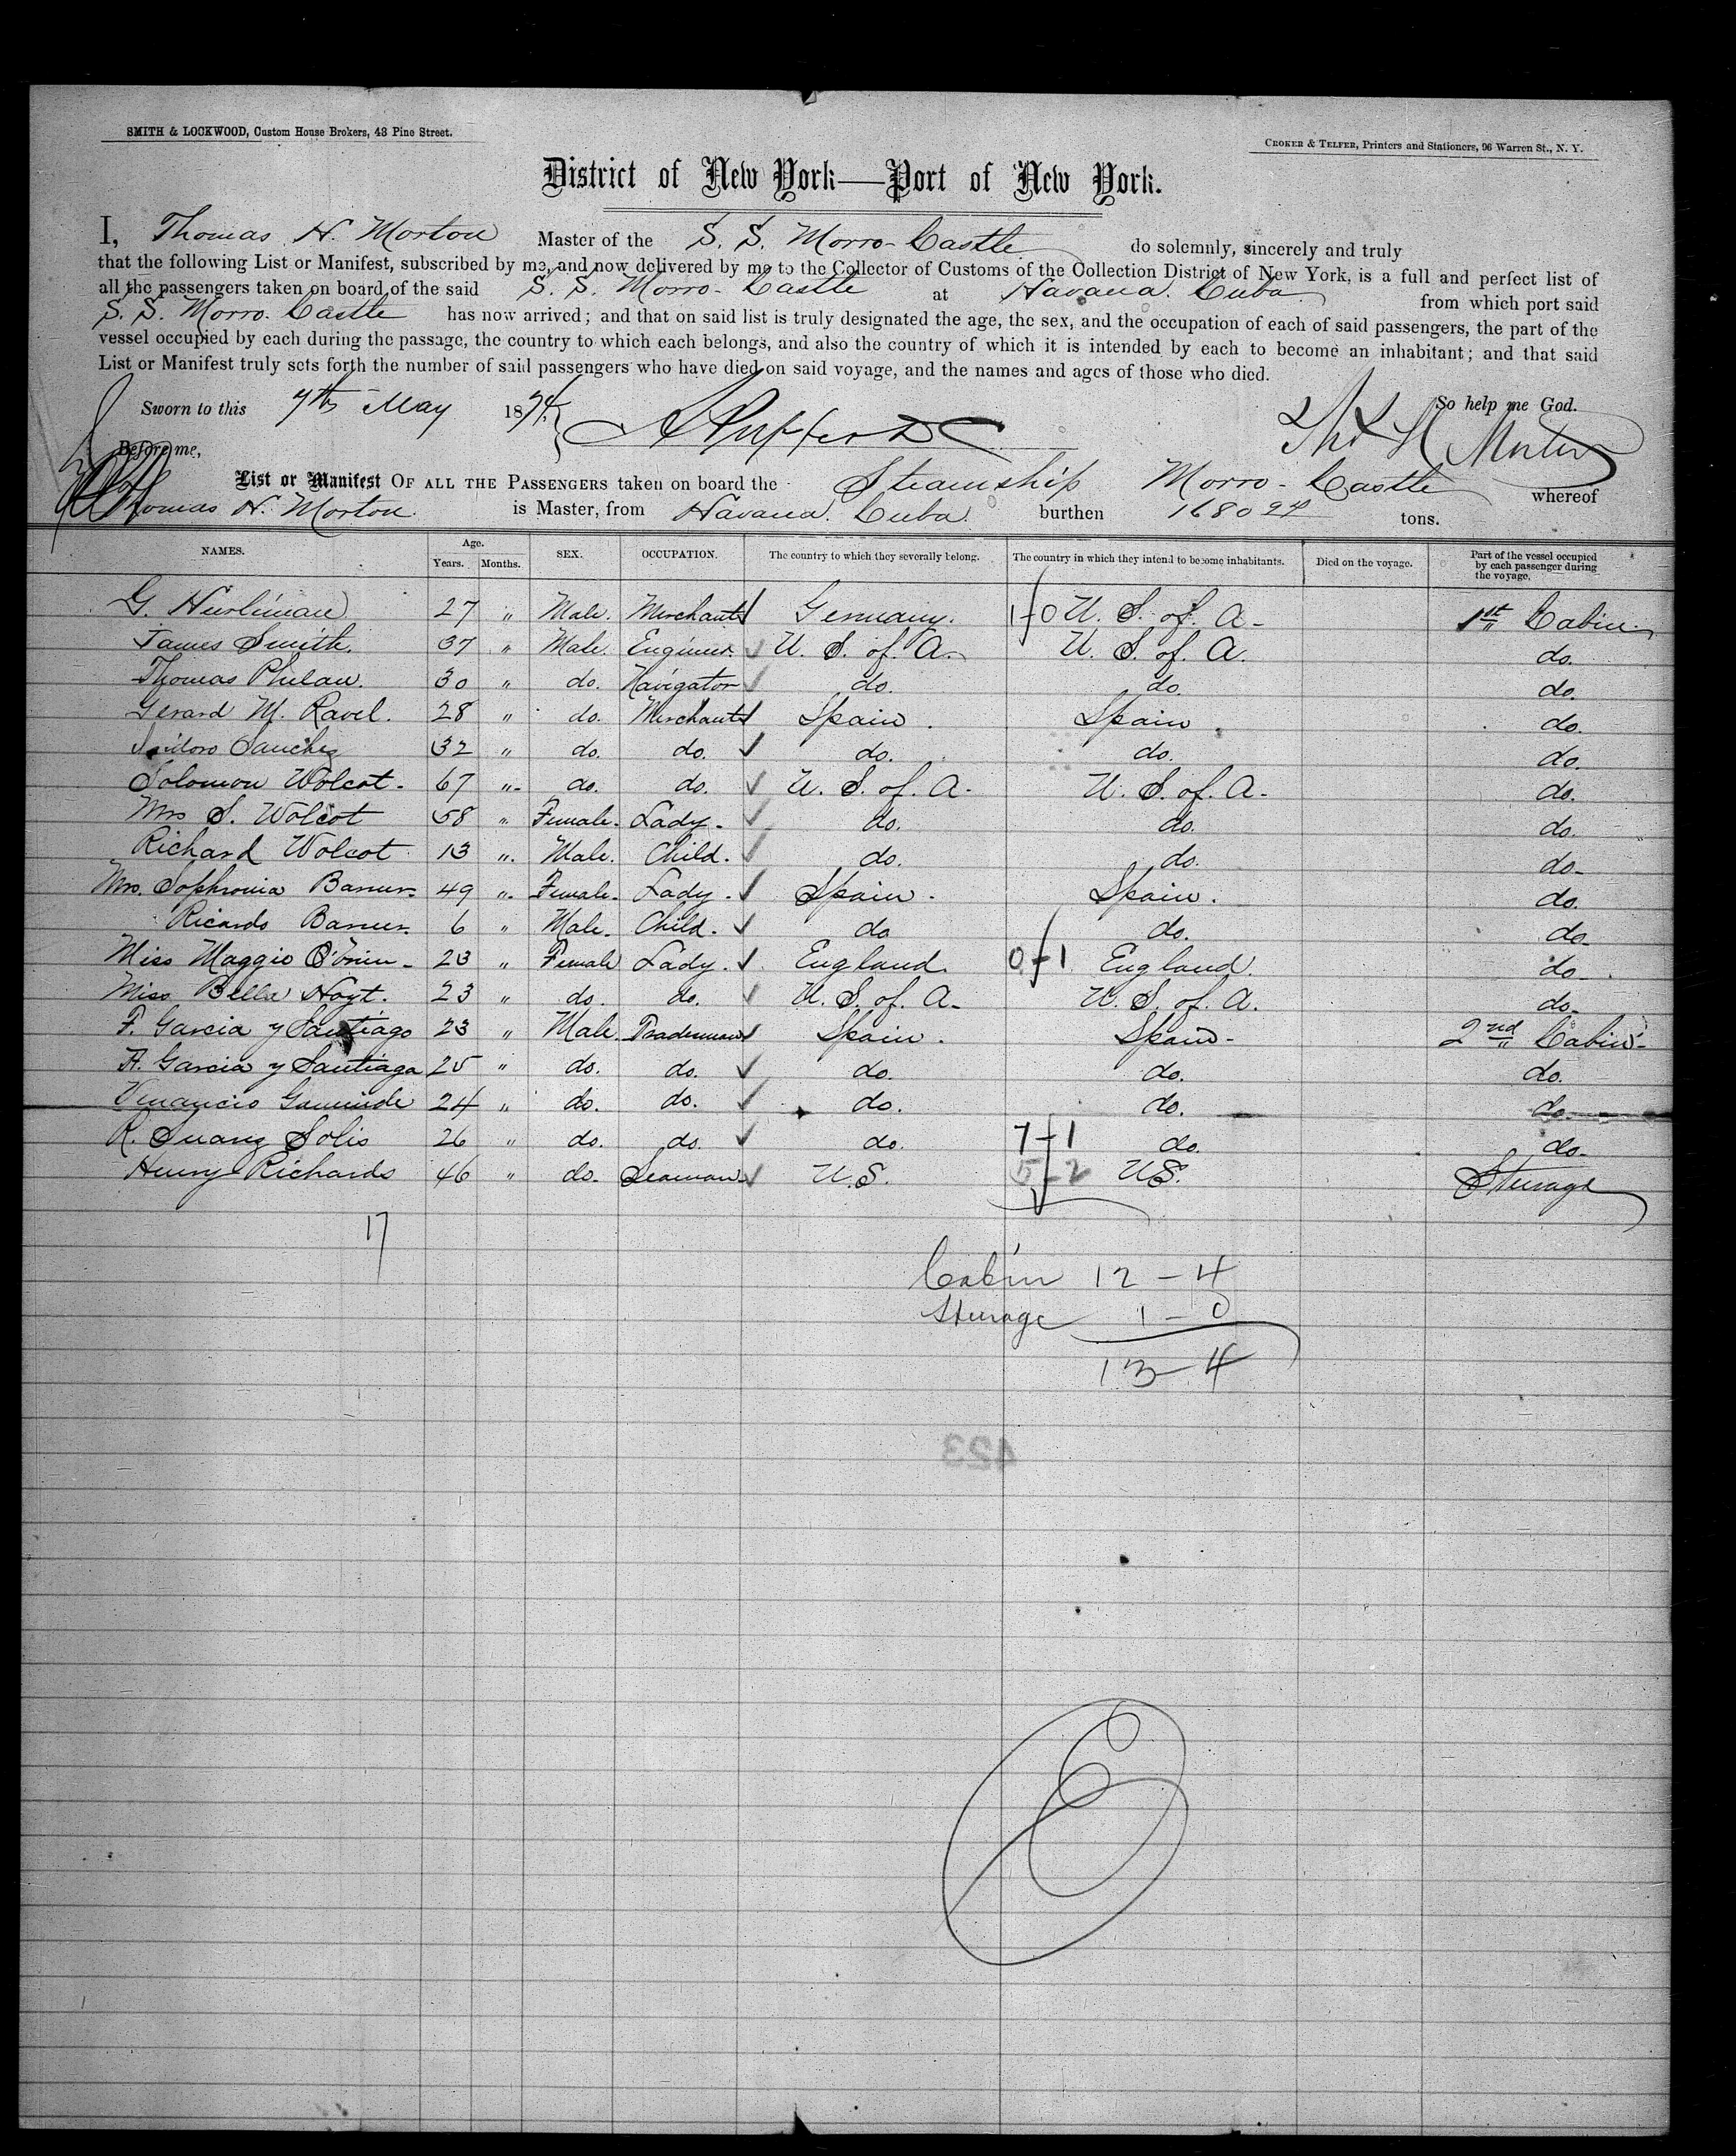 SMITH & LOCKWOOD, Custom House Brokers, 43 Pine Street.
CROKER & TELFER, Printers and Stationers, 96 Warren St., N. Y.
District of New York—Port of New York.
I, Thomas H. Morton Master of the S. S. Morro-Castle do solemnly, sincerely and truly
that the following List or Manifest, subscribed by me, and now delivered by me to the Collector of Customs of the Collection District of New York, is a full and perfect list of
all the passengers taken on board of the said S. S. Morro-Castle at Havana. Cuba. from which port said
S. S. Morro-Castle has now arrived; and that on said list is truly designated the age, the sex, and the occupation of each of said passengers, the part of the
vessel occupied by each during the passage, the country to which each belongs, and also the country of which it is intended by each to become an inhabitant; and that said
List or Manifest truly sets forth the number of said passengers who have died on said voyage, and the names and ages of those who died.
Sworn to this 7th May 1874 So help me God.
Before me, Thos H Morton
List or Manifest OF ALL THE PASSENGERS taken on board the Steamship Morro-Castle whereof
Thomas H. Morton. is Master, from Havana. Cuba. burthen 1680 94 tons.
NAMES. Age. Years. Months. SEX. OCCUPATION. The country to which they severally belong. The country in which they intend to become inhabitants. Died on the voyage. Part of the vessel occupied by each passenger during the voyage.
G. Hurliman 27 " Male. Merchant Germany. 1-0 U. S. of. A- 1st Cabin.
James Smith. 37 " Male. Engineer. U. S. of. A. U. S. of. A. do.
Thomas Phelan. 30 " do. Navigator do. do. do.
Gerard M. Ravel. 28 " do. Merchant Spain. Spain. do.
Isidoro Sanchez 32 " do. do. do. do. do.
Solomon Wolcot. 67 " do. do. U. S. of. A. U. S. of. A. do.
Mrs S. Wolcot 58 " Female. Lady. do. do. do.
Richard Wolcot 13 " Male. Child. do. do. do.
Mrs. Sophronia 49 " Female. Lady. Spain. Spain. do.
Ricardo 6 " Male. Child. do. do. do.
Miss Maggie 23 " Female Lady. England. 0-1 England. do.
Miss Bella Hoyt. 23 " do. do. U. S. of. A. U. S. of. A. do.
F. Garcia y Santiago 23 " Male. Tradesman Spain. Spain. 2nd Cabin.
A. Garcia y Santiago 25 " do. do. do. do. do.
Venancio 24 " do. do. do. do. do.
R. Suarez Solis 26 " do. do. do. 7-1 do. do.
Henry Richards 46 " do. Seaman. U.S. 5-2 US. Steerage
17
Cabin 12-4
Steerage 1-0
13-4
423